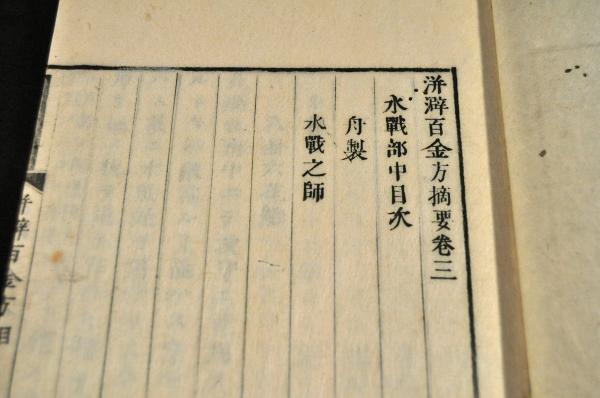 洴澼百金方摘要卷三
水戰部中目次
舟製
水戰之師
洴澼百金方